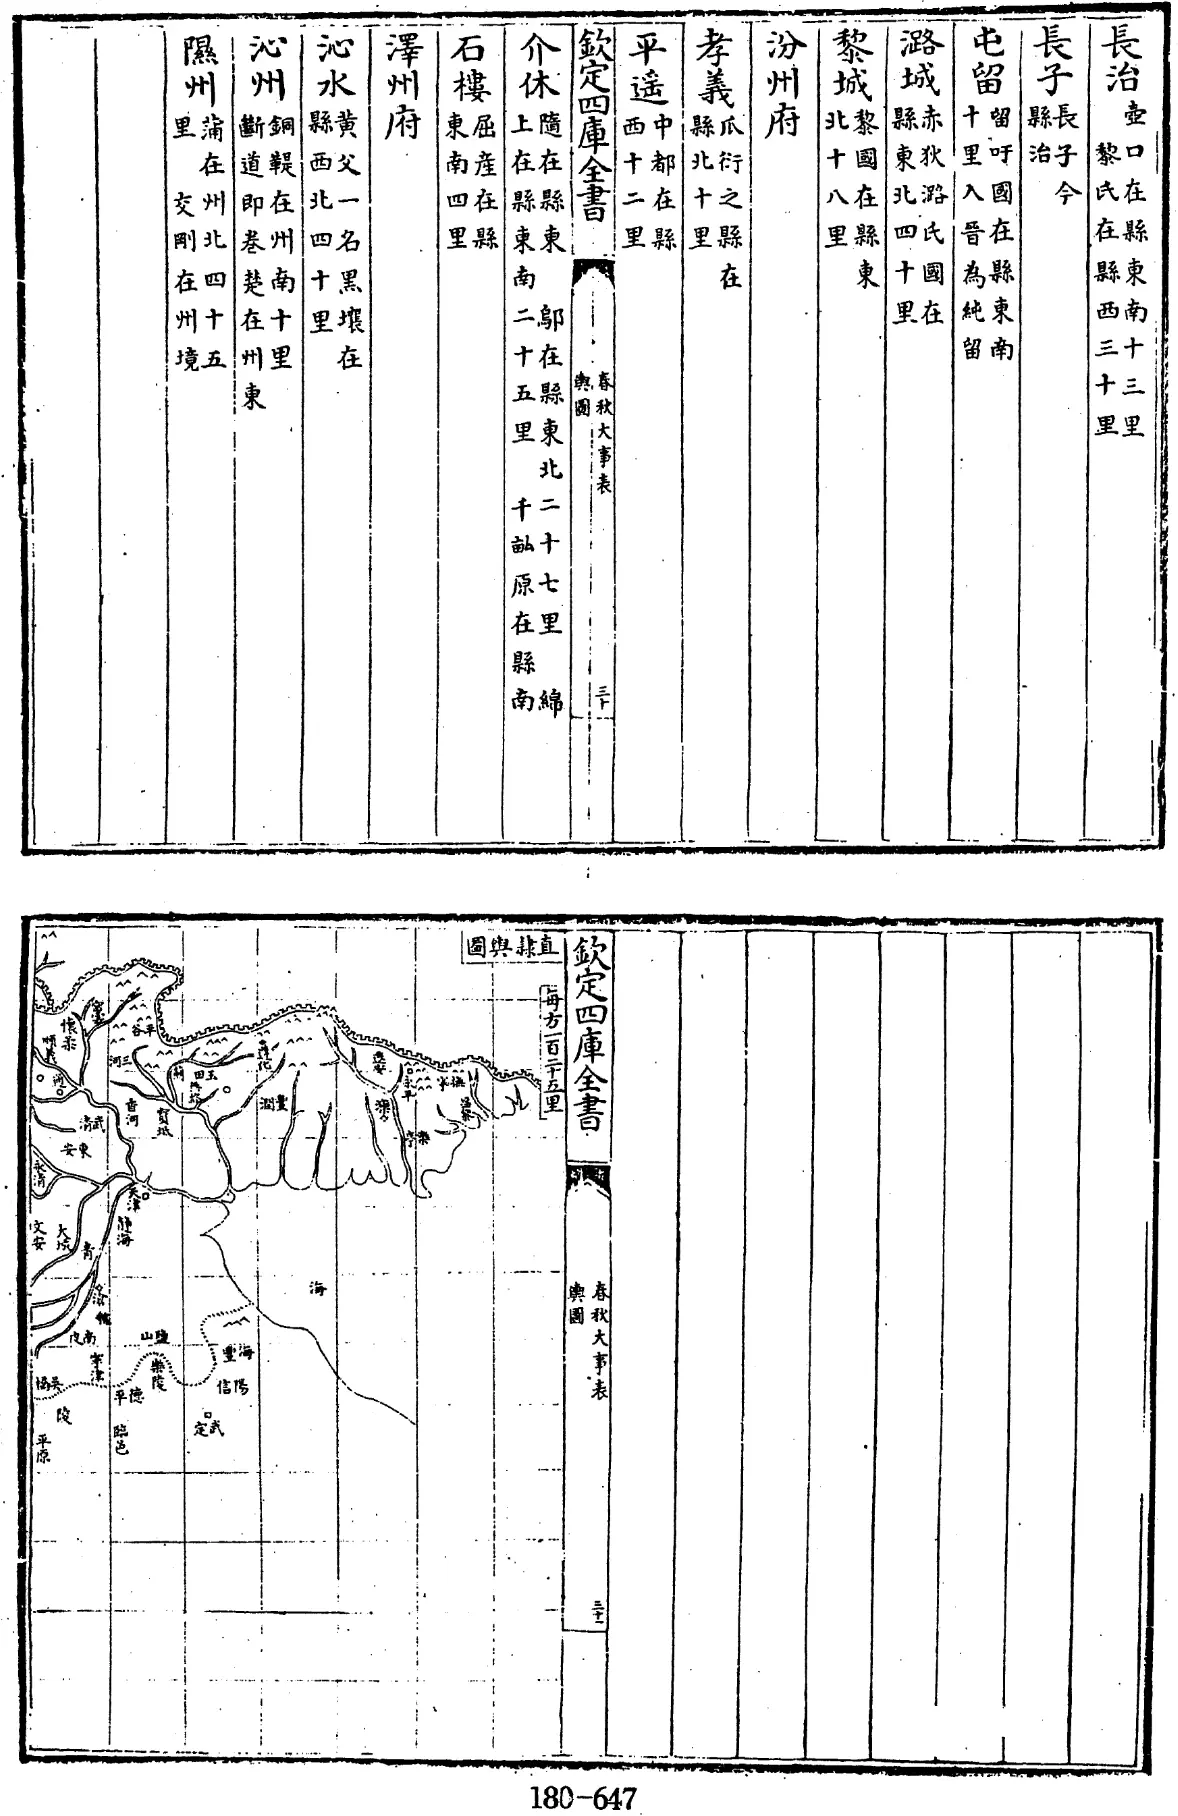 長治壺口在縣東南十三里
黎氏在縣西三十里
長子長子今
縣治
屯留留吁國在縣東南
十里入晉為純留
潞城赤狄潞氏國在
縣東北四十里
黎城黎國在縣東
北十八里
汾州府
孝義瓜衍之縣在
縣北十里
平遥中都在縣
西十二里
欽定四庫全書
春秋大事表
輿圖
三十
介休隨在縣東 鄔在縣東北二十七里 綿
上在縣東南二十五里 千畝原在縣南
石樓屈産在縣
東南四里
澤州府
沁水黄父一名黑壤在
縣西北四十里
沁州銅鞮在州南十里
斷道即卷楚在州東
隰州蒲在州北四十五
里 交剛在州境
欽定四庫全書
春秋大事表
輿圖
三十一
直隸輿圖
每方一百二十五里
撫寧
樂亭
遵化
豐潤
玉田
薊
寶坻
平谷
三河
香河
懷柔
順義
武清
東安
永清
天津
靜海
文安
大城
青
海
南皮
鹽山
寧津
海豐
樂陵
陽信
吳橋
德平
陵
武定
臨邑
平原
180-647